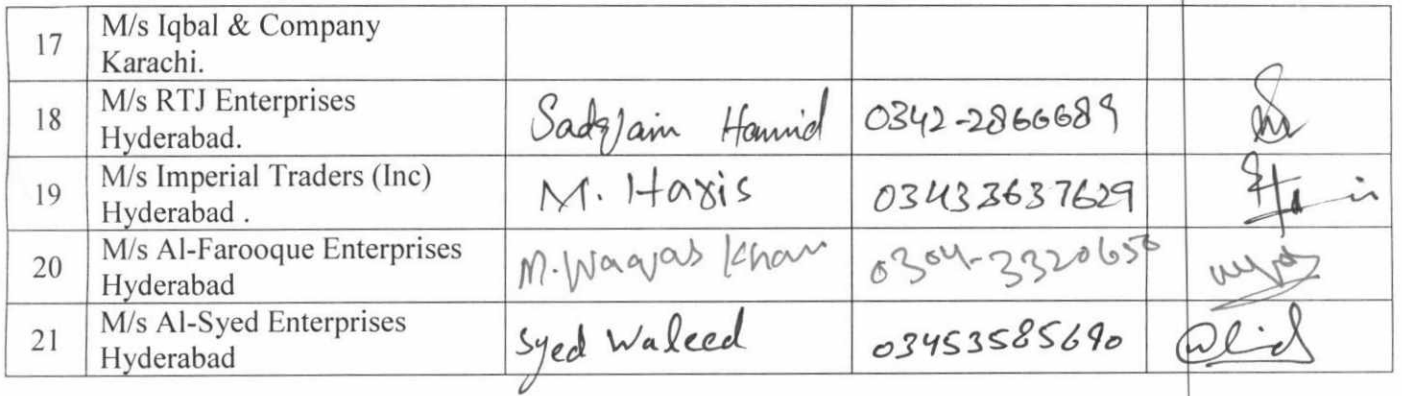 17 M/s Iqbal & Company
Karachi.
18 M/s RTJ Enterprises
Hyderabad.
Sadqain Hamid 0342-2866689
19 M/s Imperial Traders (Inc)
Hyderabad .
M. Haris 03433637629
20 M/s Al-Farooque Enterprises
Hyderabad
M. Waqas Khan 0304-3320650
21 M/s Al-Syed Enterprises
Hyderabad
Syed Waleed 03453585690